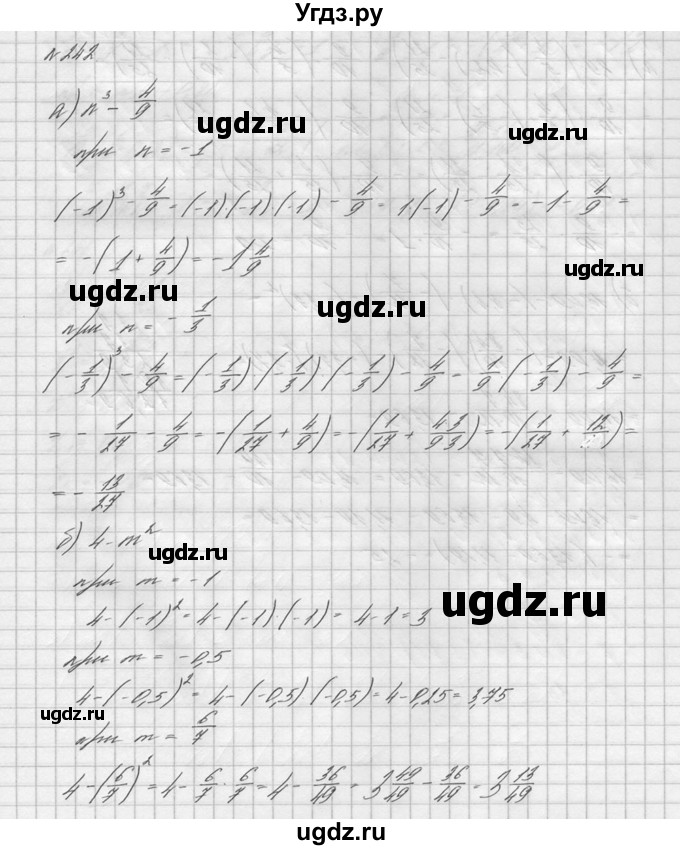 Угдз.ру
№ 242
а) n³ - 4/9
ugdz.ru
ugdz.ru
при n = -1
(-1)³ - 4/9 = (-1)(-1)(-1) - 4/9 = 1(-1) - 4/9 = -1 - 4/9 =
= -(1 + 4/9) = -1 4/9
ugdz.ru
ugdz.ru
ugdz.ru
при n = -1/3
(-1/3)³ - 4/9 = (-1/3)(-1/3)(-1/3) - 4/9 = 1/9(-1/3) - 4/9 =
= -1/27 - 4/9 = -(1/27 + 4/9) = -(1/27 + 4·3/9·3) = -(1/27 + 12/) =
= -13/27
б) 4 - m²
ugdz.ru
при m = -1
4 - (-1)² = 4 - (-1)(-1) = 4 - 1 = 3
ugdz.ru
при m = -0,5
4 - (-0,5)² = 4 - (-0,5)(-0,5) = 4 - 0,25 = 3,75
ugdz.ru
ugdz.ru
при m = 6/7
4 - (6/7)² = 4 - 6/7 · 6/7 = 4 - 36/49 = 3 49/49 - 36/49 = 3 13/49
ugdz.ru